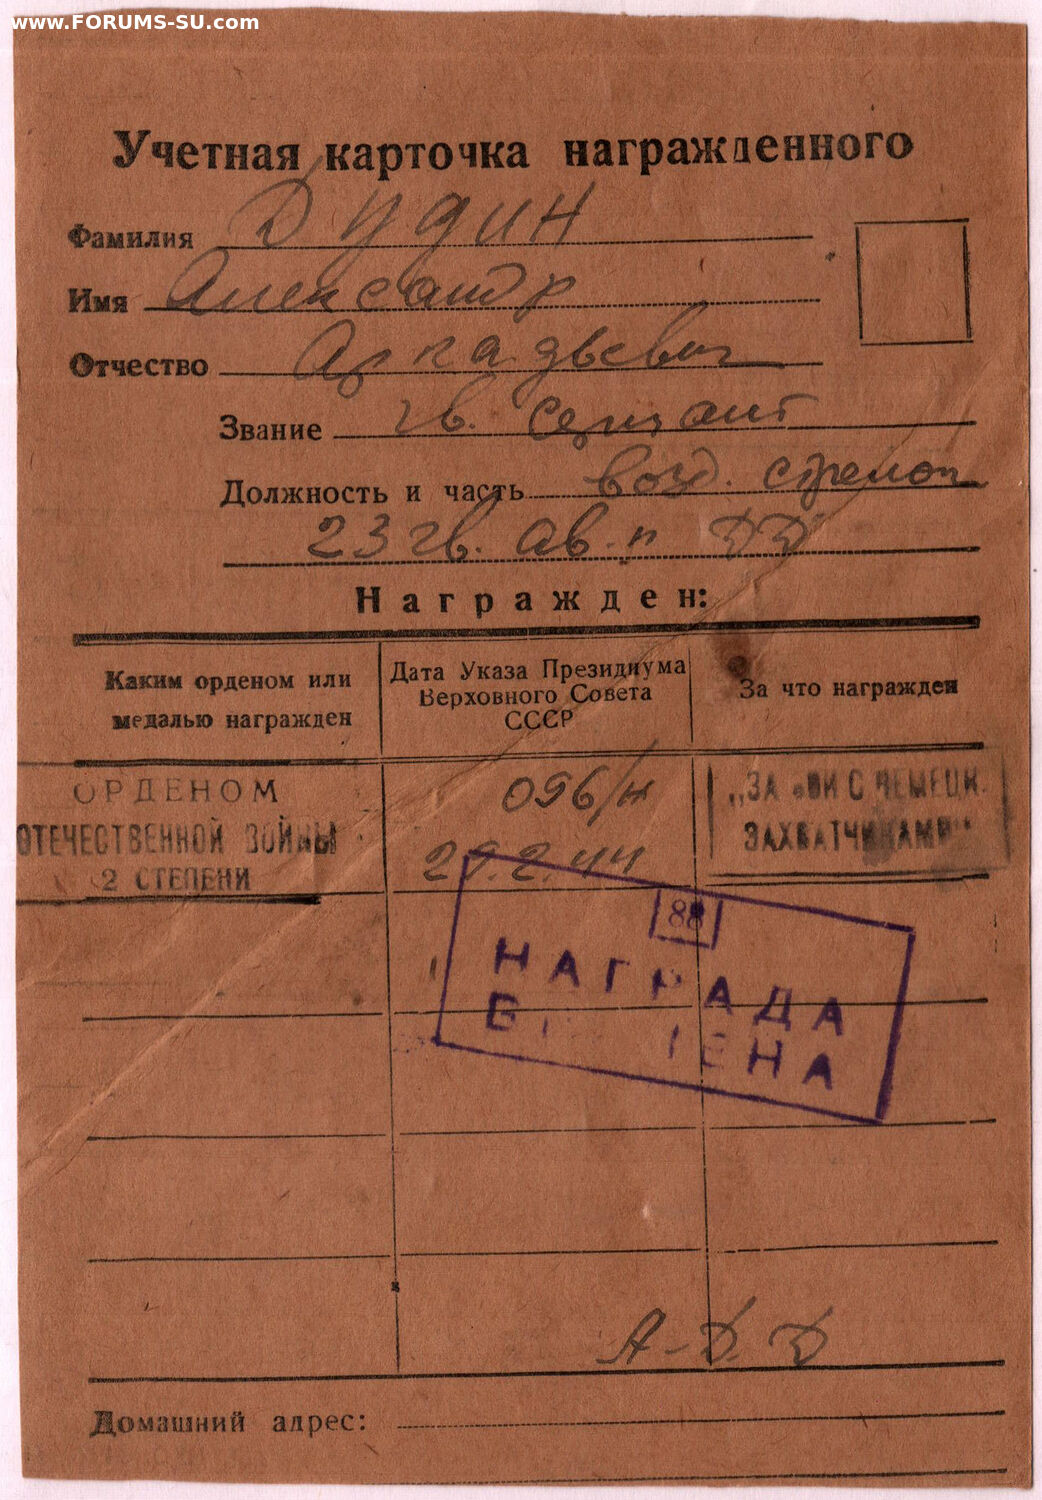 www.FORUMS-SU.com
Учетная карточка награжденного
Фамилия Дудин
Имя Александр
Отчество Аркадьевич
Звание гв. сержант
Должность и часть возд. стрелок
23 гв. ав. п ДД
Награжден:
Каким орденом или медалью награжден
Дата Указа Президиума Верховного Совета СССР
За что награжден
ОРДЕНОМ
ОТЕЧЕСТВЕННОЙ ВОЙНЫ
2 СТЕПЕНИ
096/н
29.2.44
„ЗА БОИ С НЕМЕЦК.
ЗАХВАТЧИКАМИ"
88
НАГРАДА
ВРУЧЕНА
А-Д.Д
Домашний адрес: